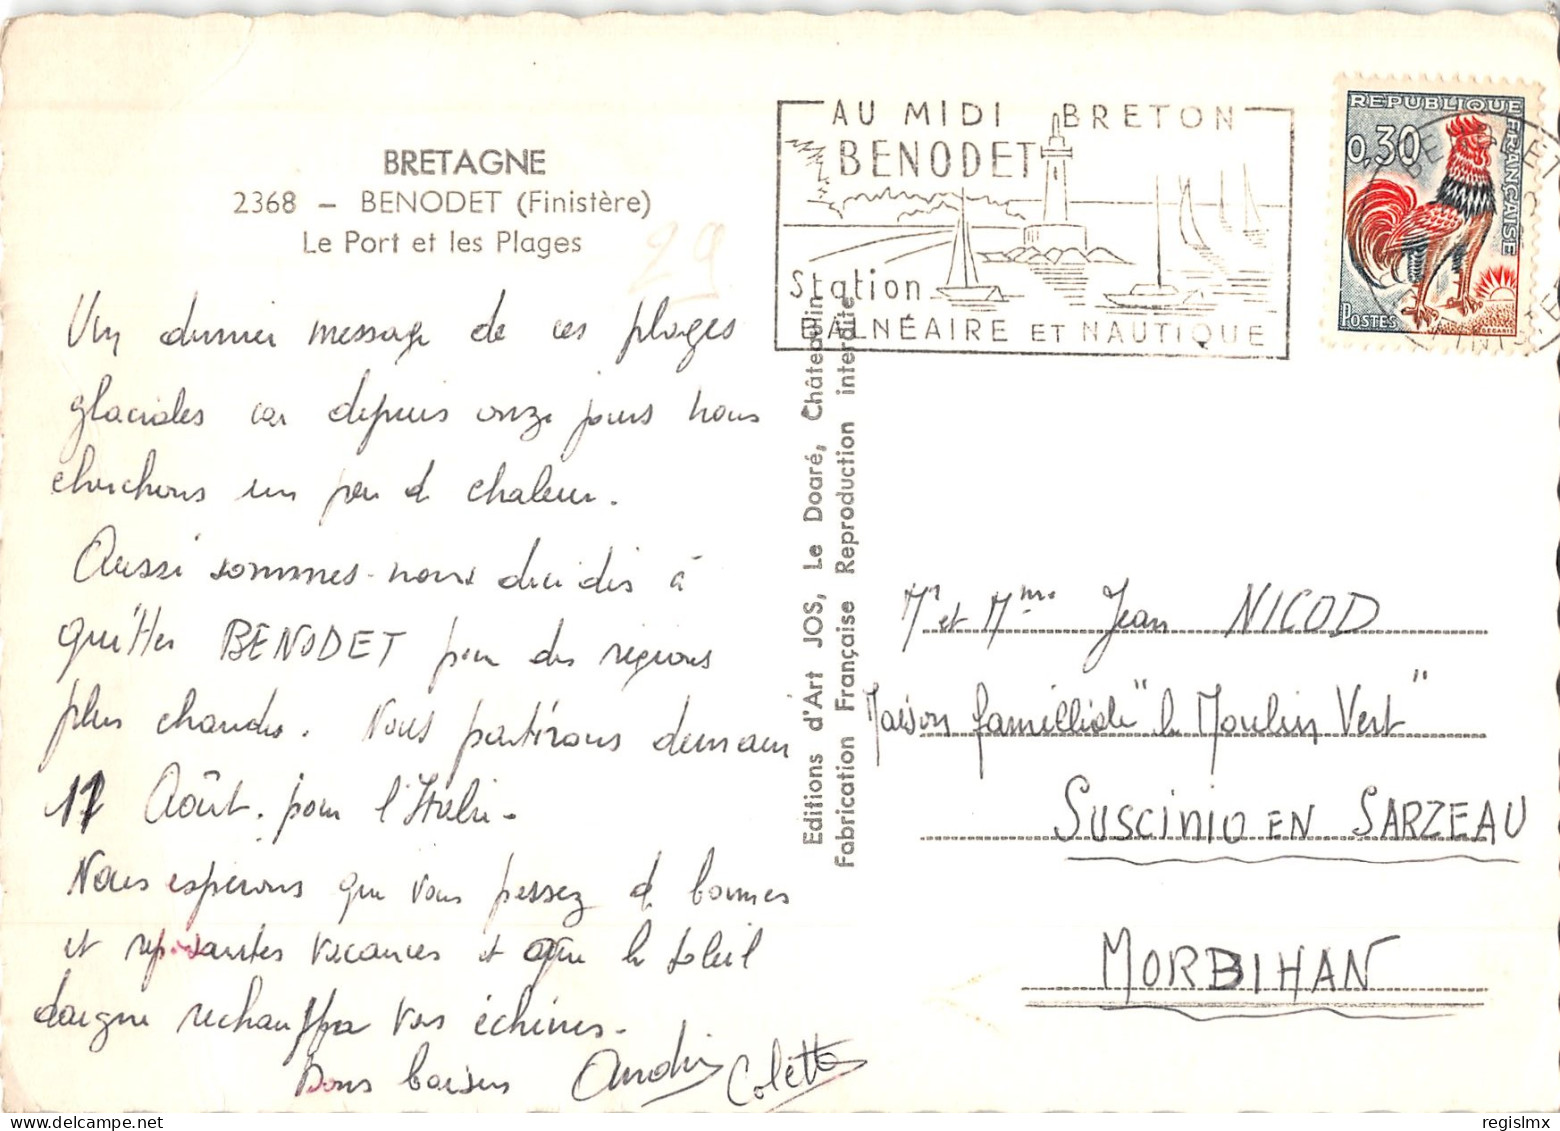 BRETAGNE
2368 – BENODET (Finistère)
Le Port et les Plages
29
Un dernier message de ces plages
glaciales car depuis onze jours nous
cherchons un peu de chaleur.
Aussi sommes-nous décidés à
quitter BENODET pour des régions
plus chaudes. Nous partirons demain
17 Août pour l'Italie.
Nous espérons que vous passez de bonnes
et reposantes vacances et que le soleil
daigne réchauffer vos échines.
Bons baisers André Colette
Editions d'Art JOS, Le Doaré, Châteaulin
Fabrication Française Reproduction interdite
AU MIDI BRETON
BENODET
Station
BALNÉAIRE ET NAUTIQUE
REPUBLIQUE FRANÇAISE
0,30
POSTES
BENODET
FINISTERE
Mr et Mme Jean NICOD
Maison familliale "le Moulin Vert"
SUSCINIO EN SARZEAU
MORBIHAN
regislmx